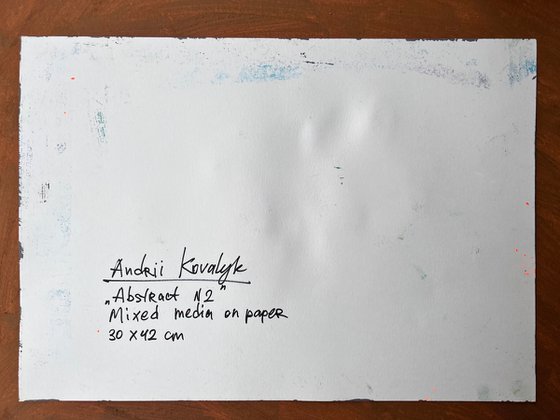 Andrii Kovalyk
„Abstract N2"
Mixed media on paper
30 x 42 cm